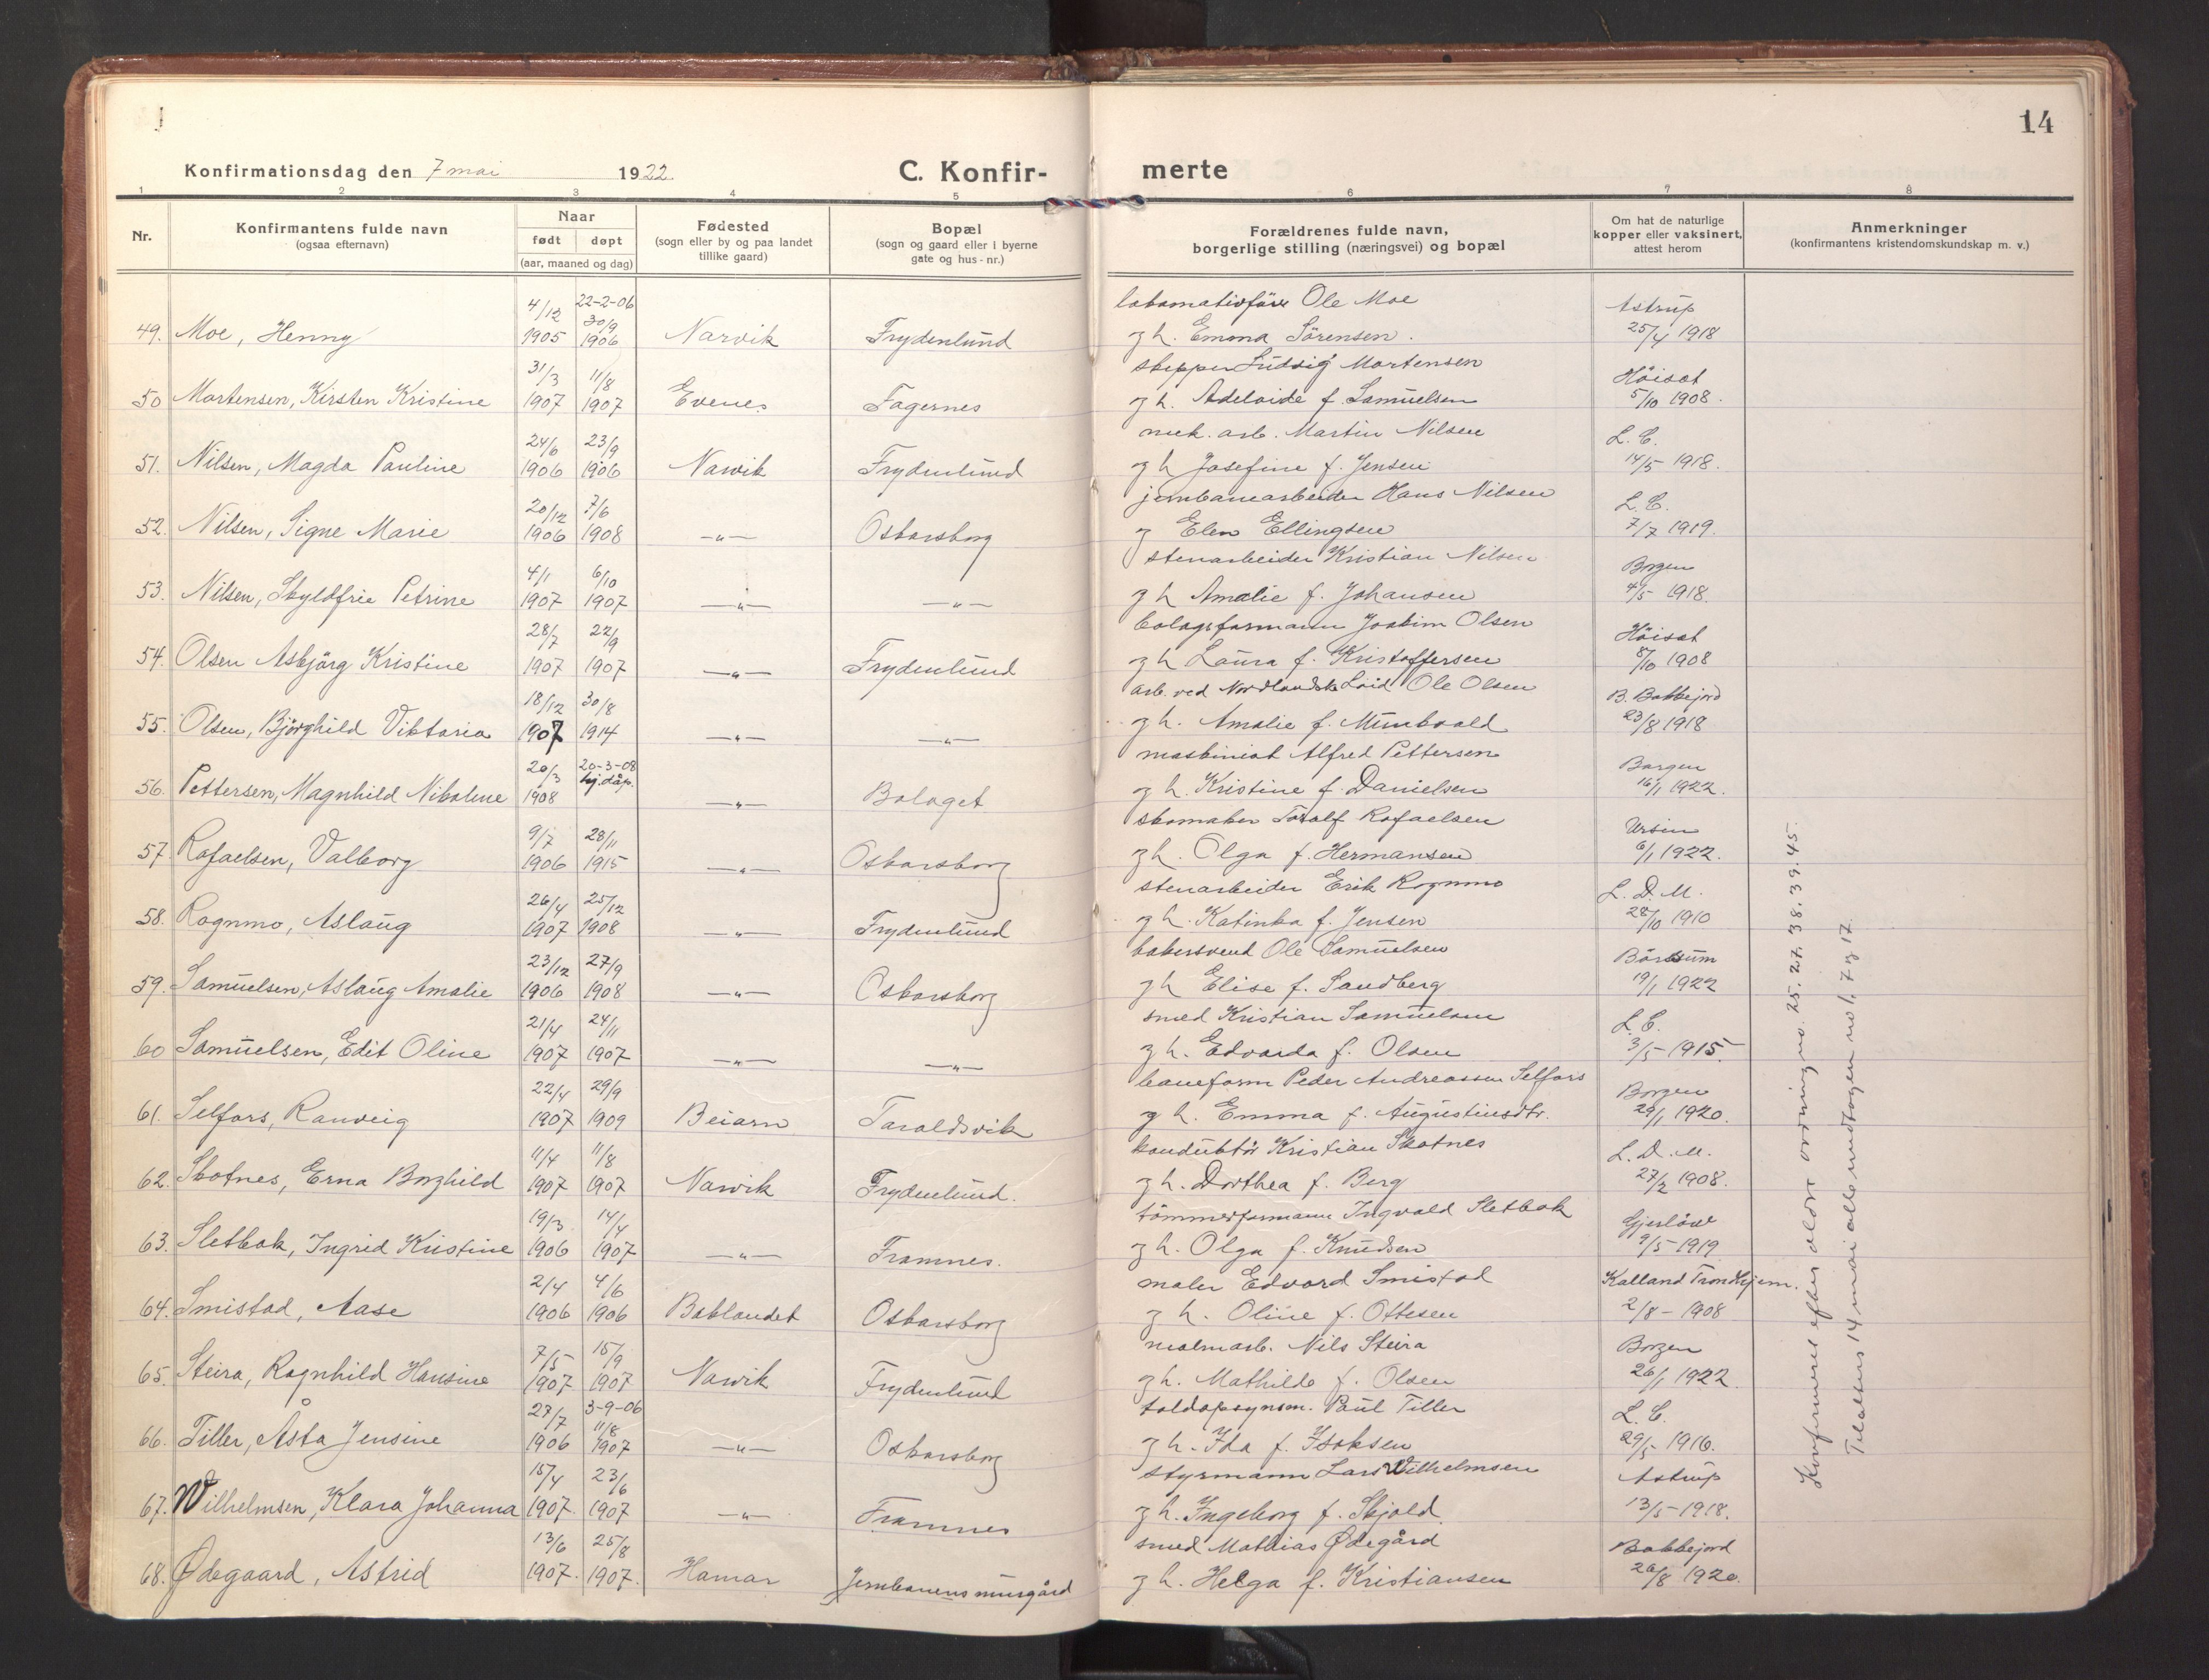 14
Konfirmationsdag den 7 mai 1922.
C. Konfir-
merte
1 2 3 4 5 6 7 8
Nr.
Konfirmantens fulde navn
(ogsaa efternavn)
Naar
født døpt
(aar, maaned og dag)
Fødested
(sogn eller by og paa landet
tillike gaard)
Bopæl
(sogn og gaard eller i byerne
gate og hus-nr.)
Forældrenes fulde navn,
borgerlige stilling (næringsvei) og bopæl
Om hat de naturlige
kopper eller vaksinert,
attest herom
Anmerkninger
(konfirmantens kristendomskundskap m. v.)
4/12 22-2-06 30/9 lokomotivfører Ole Moe Astrup
49. Moe, Henny 1905 1906 Narvik Frydenlund g h. Emma Sörensen. 25/4 1918
31/3 11/8 skipper Ludvig Mortensen Höisat
50 Mortensen, Kirsten Kristine 1907 1907 Evenes Fagernes g h. Adelaide f. Samuelsen 5/10 1908.
24/6 23/9 mek. arb. Martin Nilsen L. C.
51. Nilsen, Magda Pauline 1906 1906 Narvik Frydenlund g h Josefine f. Jensen 14/5 1918.
20/12 7/6 jernbanearbeider Hans Nilsen L. C.
52. Nilsen, Signe Marie 1906 1908 -"- Oskarsborg g Elen Ellingsen 7/7 1919.
4/1 6/10 stenarbeider Kristian Nilsen Borgen
53. Nilsen, Skyldfrie Petrine 1907 1907 -"- -"- g h Amalie f. Johansen 4/5 1918.
28/7 22/9 bolagsformann Joakim Olsen Höisat
54. Olsen Asbjörg Kristine 1907 1907 -"- Frydenlund g h Laura f. Kristoffersen 8/10 1908
18/12 30/8 arb. ved Nordlandske Loid Ole Olsen B. Bakkejord
55. Olsen, Björghild Viktoria 1907 1914 -"- -"- g h. Amalie f. Munkvold 23/8 1918
20/3 20-3-08 hj.dåp. maskinist Alfred Pettersen Borgen
56. Pettersen, Magnhild Nikoline 1908 -"- Bolaget g h. Kristine f. Danielsen 16/1 1922.
9/7 28/11 skomaker Toralf Rafaelsen Ursin
57. Rafaelsen, Valborg 1906 1915 -"- Oskarsborg g h. Olga f. Hermansen 6/1 1922.
26/4 25/12 stenarbeider Erik Rognmo L. D. M.
58. Rognmo, Aslaug 1907 1908 -"- Frydenlund g h. Katinka f. Jensen 28/10 1910
23/12 27/9 bakersvend Ole Samuelsen Börssum
59. Samuelsen, Aslaug Amalie 1906 1908 -"- Oskarsborg g h Elise f. Sandberg 19/1 1922
21/4 24/11 smed Kristian Samuelsen L. C.
60 Samuelsen, Edit Oline 1907 1907 -"- -"- g h. Edvarda f. Olsen 3/5-1915.
22/4 29/9 baneform Peder Andreassen Selfors Borgen
61. Selfors, Ranveig 1907 1909 Beiarn Taraldsvik g h. Emma f. Augustinsdtr. 29/1 1920.
11/4 11/8 konduktör Kristian Skotnes L. D. M.
62. Skotnes, Erna Borghild 1907 1907 Narvik Frydenlund. g h. Dorthea f. Berg 27/2 1908.
19/3 14/4 tömmerformann Ingvald Sletbak Gjerlöw
63. Sletbak, Ingrid Kristine 1906 1907 -"- Framnes. g h. Olga f. Knudsen 9/5-1919
2/4 4/6 maler Edvard Smistad Kalland Trondhjem.
64. Smistad, Aase 1906 1906 Baklandet Oskarsborg g h. Oline f. Ottesen 2/8-1908
7/5 15/9 malmarb. Nils Steira Borgen
65. Steira, Ragnhild Hansine 1907 1907 Narvik Frydenlund g h. Mathilde f. Olsen 26/1 1922.
27/7 3-9-06 11/8 toldopsynsm. Paul Tiller L. C.
66. Tiller, Åsta Jensine 1906 1907 -"- Oskarsborg g h. Ida f. Isaksen 29/5 1916.
15/4 23/6 styrmann Lars Wilhelmsen Astrup
67. Wilhelmsen, Klara Johanna 1907. 1907 -"- Framnes g h. Ingeborg f. Skjold. 13/5-1918.
13/6 25/8 smed Mathias Ødegård Bakkejord
68. Ødegaard, Astrid 1907. 1907. Hamar Jernbanens murgård g h. Helga f. Kristiansen 26/8 1920.
Konfirmeres efter aldre ordning no. 25. 27. 38. 39. 45.
Tilalters 14 mai alle undtagen no 1. 7 og 17.